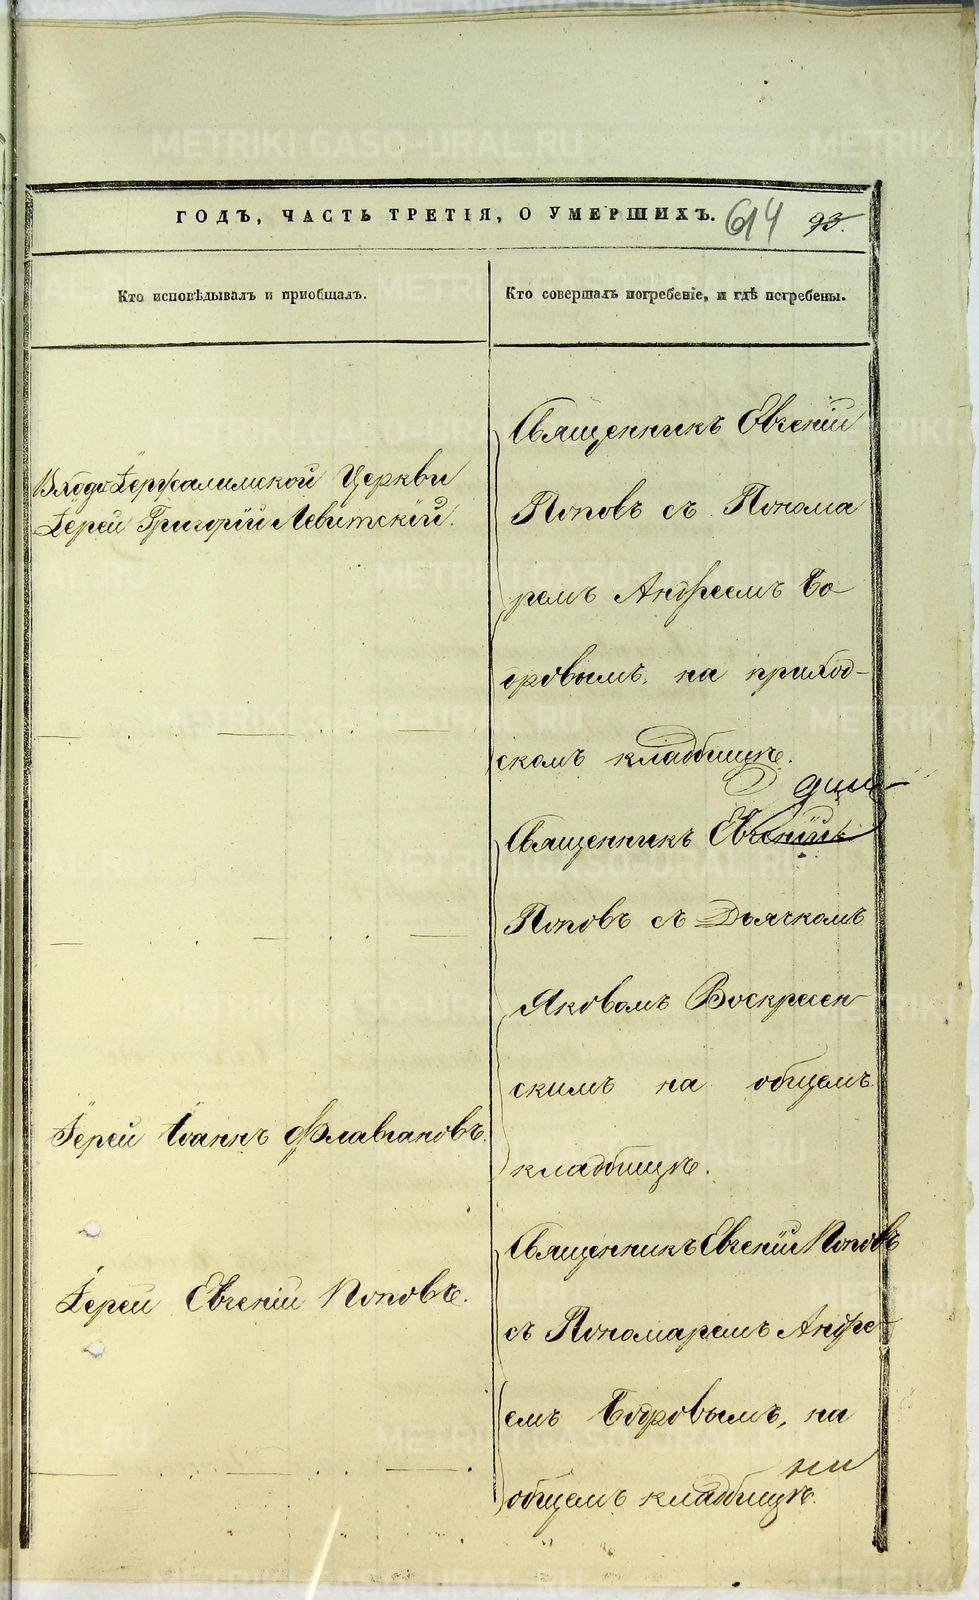 METRIKI.GASO-URAL.RU
ГОДЪ, ЧАСТЬ ТРЕТІЯ, О УМЕРШИХЪ. 614 93.
Кто исповѣдывалъ и пріобщалъ.
Кто совершалъ погребеніе, и гдѣ погребены.
Входо-Іерусалимской Церкви
Іерей Григорій Левитскій.
Іерей Іоаннъ Флавіановъ.
Іерей Евгеній Поповъ.
Священникъ Евгеній
Поповъ съ Понома
ремъ Андреемъ Бо
дровымъ, на приход-
скомъ кладбищѣ.
Священникъ Евгеній
Поповъ съ Дьячкомъ
Яковомъ Воскресен
скимъ на общемъ
кладбищѣ.
Священникъ Евгеній Поповъ
съ Пономаремъ Андре-
емъ Бодровымъ, на
общемъ кладбищѣ.